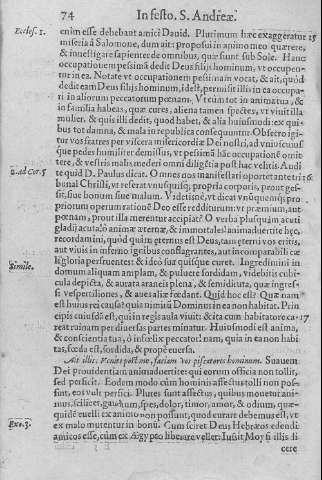 74 In festo. S. Andreæ.
Eccles. 1. enim esse debebant amici Dauid. Plurimum hæc exaggeratur 15
miseria à Salomone, dum ait: proposui in animo meo quærere,
& inuestigare sapienter de omnibus, quæ fiunt sub Sole. Hanc
occupationem pessimã dedit Deus filijs hominum, vt occupen-
tur in ea. Notate vt occupationem pessimam vocat, & ait, quòd
dedit eam Deus filijs hominum, id est, permisit illis in ea occupa-
ri in aliorum peccatorum pœnam. Vt cùm tot in animatus, &
in familia habeas, quæ cures, aliena tamen spectes, vt vixit illa
mulier, & quis illi dedit, quod habet, & alia huiusmodi: ex qui-
bus tot damna, & mala in republica consequuntur. Obsecro igi-
tur vos fratres per viscera misericordiæ Dei nostri, ad vniuscuius
que pedes humiliter demissus, vt pessimã hãc occupationẽ omit-
tere, & vestris malis mederi omni diligẽtia post hac velitis. Audi
2. ad Cor. 5 te quid D. Paulus dicat. Omnes nos manifestari oportet ante tri- 16
bonal Christi, vt referat vnusquisq; propria corporis, prout ges-
sit, siue bonum siue malum. Videtin e, vt dicat vnũquemq; pro
priorum operum rationẽ Deo esse redditurum: vt præmium, aut
pœnam, prout illa merentur accipiat? O verba plusquàm acuti
gladij acuta! ò animæ æternæ, & immortales animaduertite hęc,
recordamini, quòd quàm ęternus est Deus, tam ęterni vos eritis,
aut viuis in inferno ignibus conflagrantes, aut incomparabili cæ
Simile. li gloria perfruentes: & ideo sur quisque curet. Ingredimini in
domum aliquam amplam, & puluere sordidam, videbitis cubi-
cula depicta, & aurata araneis plena, & semidiruta, quæ ingres-
si vespertiliones, & aues aliæ fœdant. Quid hoc est? Quæ nam
est huius rei causa? quia nimiũ Dominus in ea non habitat. Prin
cipis cuiusdã est, qui in regis aula viuit: & ita cum habitatore ca- 17
reat ruinam per diuersas partes minatur. Huiusmodi est anima,
& conscientia tua, ò infœlix peccator: nam, quia in ea non habi
tas, fœda est, sordida, & propè euersa.
At illic: Venite post me, faciam vos piscatores hominum. Suauem
Dei prouidentiam animaduertite: qui eorum officia non tollit,
sed perficit. Eodem modo cùm hominis affectus tolli non pos-
sint, eos vult perfici. Plures sunt affectus, quibus mouetur ani-
mus, scilicet, gaudium, spes, dolor, timor, amor, & odium, quæ-
quidẽ euelli ex animo non possunt, quod curare debemus est, vt
Exo. 3. ex malo mutentur in bonũ. Cum sciret Deus Hebræos edendi
amicos esse, cùm ex Ægypto liberare vellet: Iussit Moysi illis di
cere